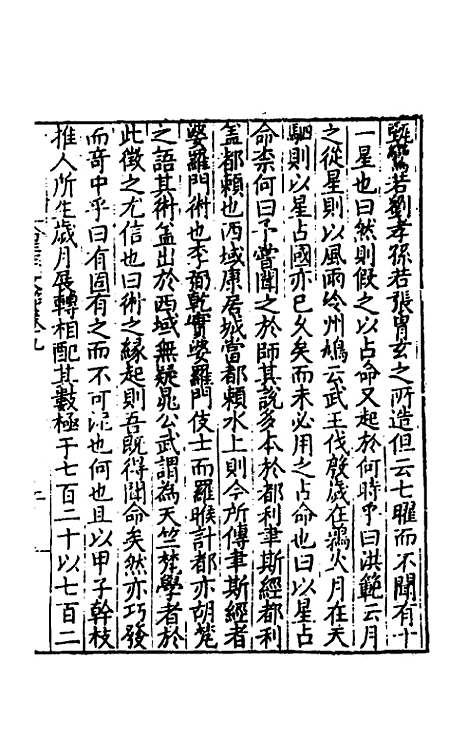 若劉孝孫若張胄玄之所造但云七曜而不聞有十
一星也曰然則假之以占命又起於何時乎曰洪範云月
之從星則以風雨伶州鳩云武王伐殷歲在鶉火月在天
駟則以星占國亦已久矣而未必用之占命也曰以星占
命柰何曰予嘗聞之於師其說多本於都利聿斯經都利
盖都頼也西域康居城當都頼水上則今所傳聿斯經者
婆羅門術也李弼乾實婆羅門伎士而羅睺計都亦胡梵
之語其術盖出於西域無疑晁公武謂為天竺梵學者於
此徵之尤信也曰術之縁起則吾既得聞命矣然亦巧發
而奇中乎曰有固有之而不可泥也何也且以甲子幹枝
推人所生歳月展轉相配其數極于七百二十以七百二
卷九